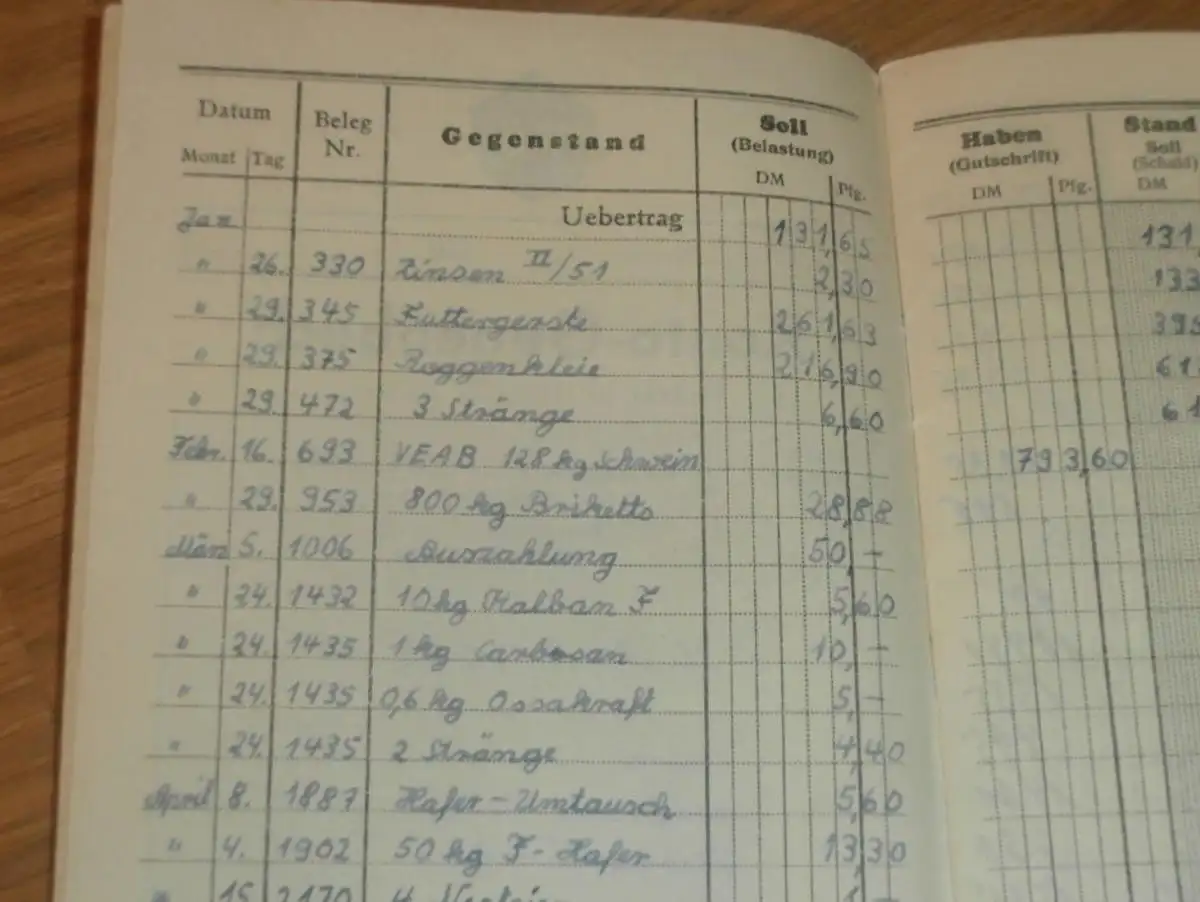 Datum Beleg Nr. Gegenstand Soll (Belastung) Haben (Gutschrift) Stand Soll (Schuld)
Monat Tag DM Pfg. DM Pfg. DM
Jan Uebertrag 131,65 131,
" 26. 330 Zinsen II/51 2,30 133
" 29. 345 Futtergerste 261,63 395
" 29. 375 Roggenkleie 216,90 61
" 29. 472 3 Stränge 6,60 61
Febr. 16. 693 VEAB 128 kg Schwein 793,60
" 29. 953 800 kg Briketts 28,88
März 5. 1006 Auszahlung 50,–
" 24. 1432 10 kg F 5,60
" 24. 1435 1 kg Carbosan 10,–
" 24. 1435 0,6 kg Ossakraft 5,–
" 24. 1435 2 Stränge 4,40
April 8. 1887 Hafer-Umtausch 5,60
" 4. 1902 50 kg F-Hafer 13,30
" 15. 2170 4 1,–